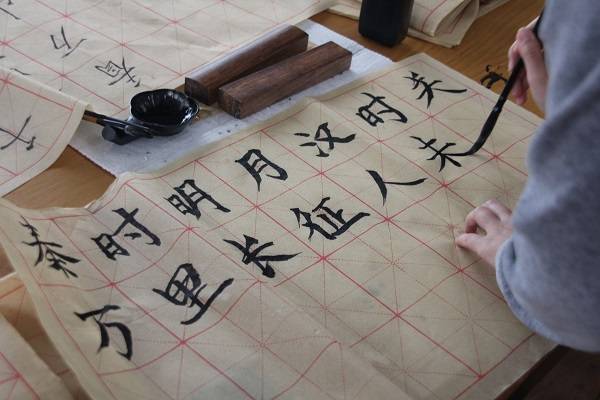 秦时明月汉时关
万里长征人未